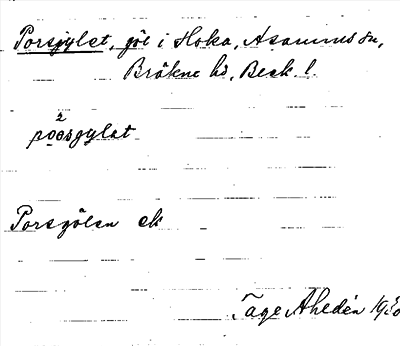 Porsgylet, göl i Hoka, Asarums sn,
Bräkne hd, Blek. l.
2
poosgylat
Porsgölen ek
Tage Ahldén 19